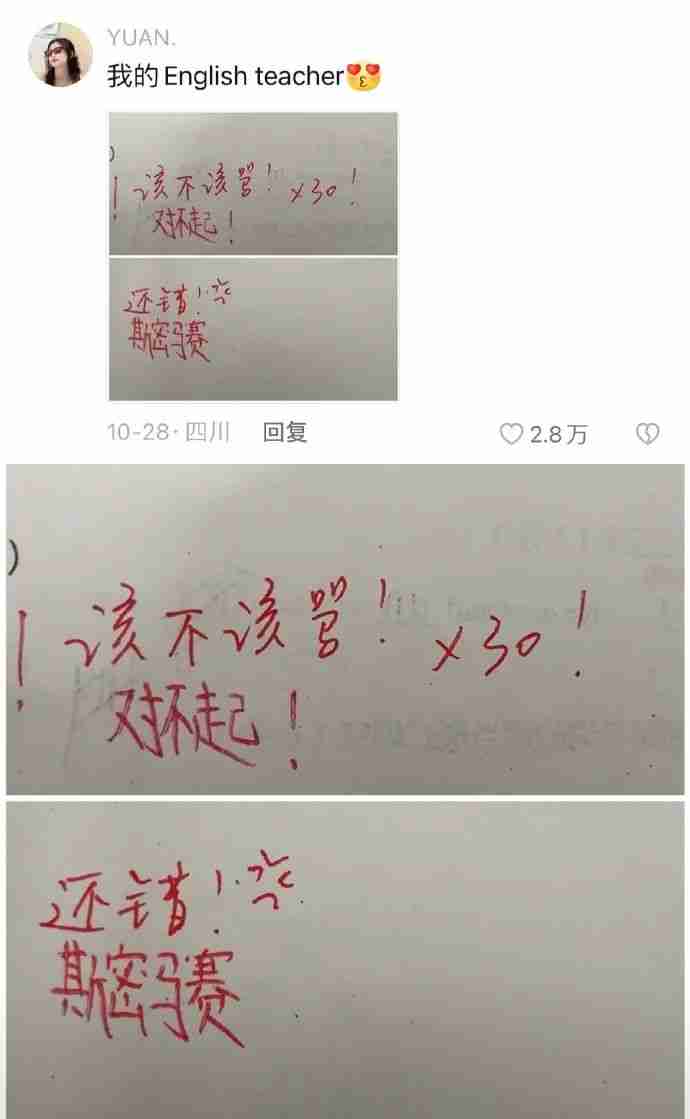 YUAN.
我的English teacher😍
)
! 该不该骂! ×30!
对不起!
还错!
斯密马赛
10-28·四川 回复 2.8万
)
! 该不该骂! ×30!
对不起!
还错!
斯密马赛